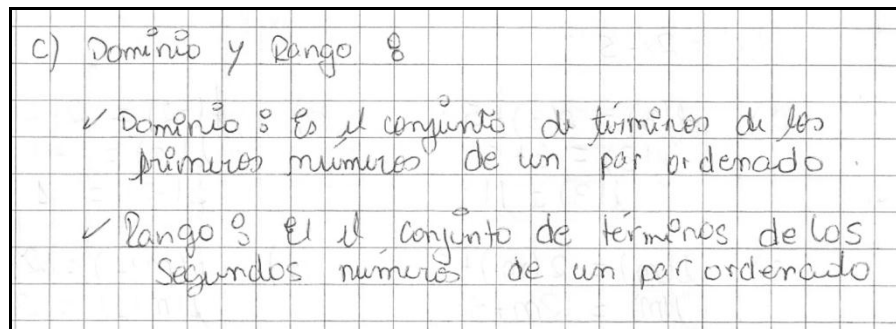 c) Dominio y Rango :
✓ Dominio : Es el conjunto de términos de los
primeros números de un par ordenado.
✓ Rango : Es el conjunto de términos de los
Segundos números de un par ordenado